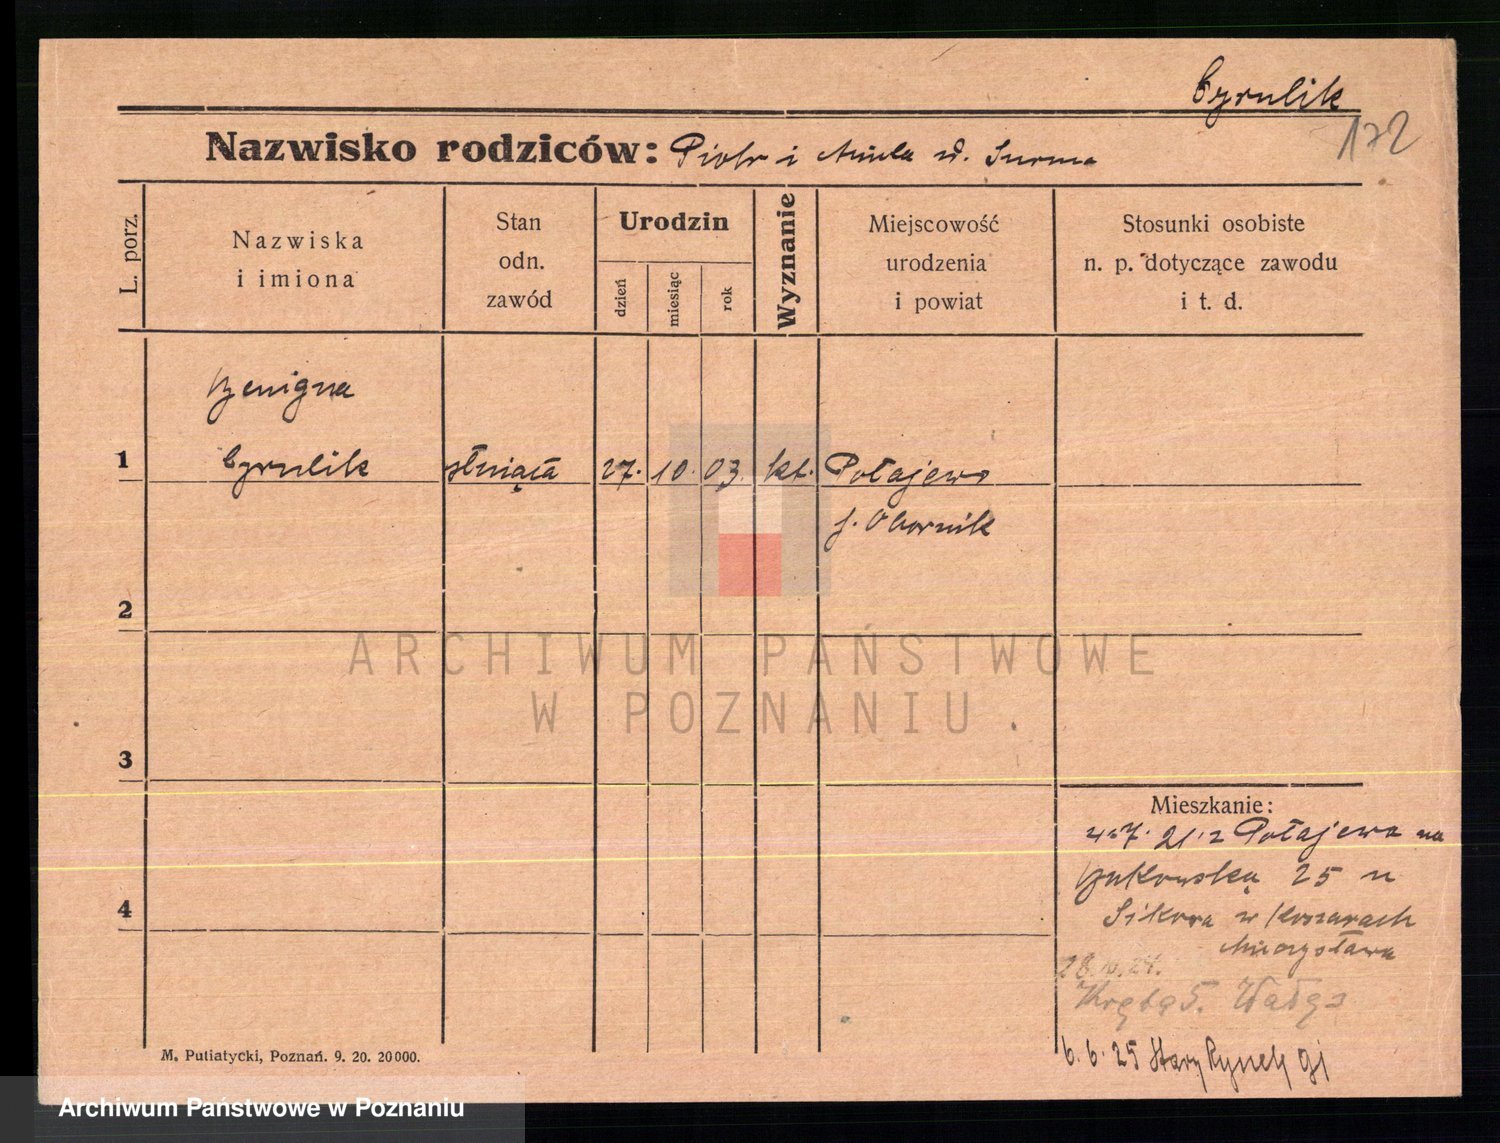 Cyrulik
172
Nazwisko rodziców: Piotr i Aniela d. Surma
L. porz.
Nazwiska
i imiona
Stan
odn.
zawód
Urodzin
dzień
miesiąc
rok
Wyznanie
Miejscowość
urodzenia
i powiat
Stosunki osobiste
n. p. dotyczące zawodu
i t. d.
Benigna
1 Cyrulik służąca 27. 10. 03. kt. Połajewo
p. Obornik
2
ARCHIWUM PAŃSTWOWE
W POZNANIU
3
Mieszkanie:
Połajewa na
Bukowską 25 u
Sikora w Koszarach
Mieczysława
28. 24.
Krętą 5.
4
6. 6. 25 Stary Rynek 91
M. Putiatycki, Poznań. 9. 20. 20000.
Archiwum Państwowe w Poznaniu